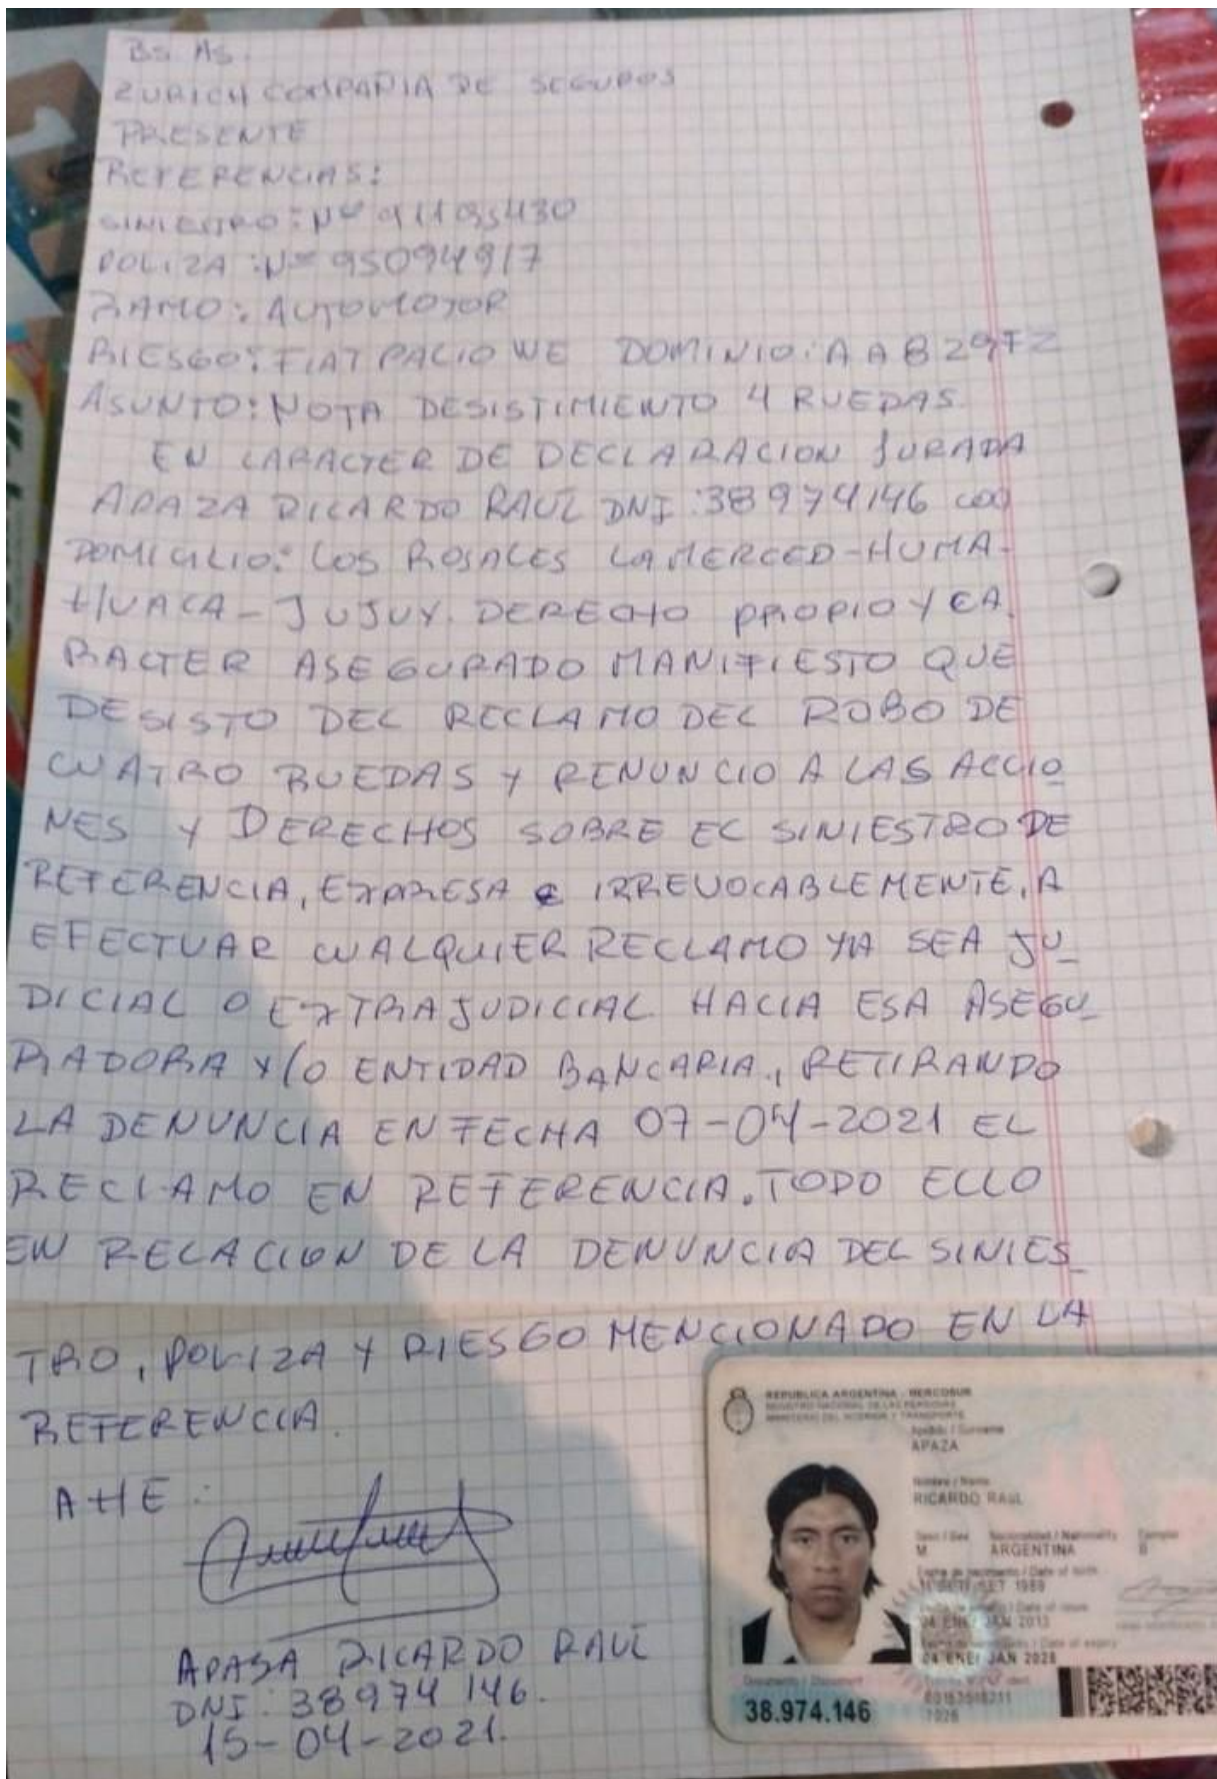 Bs. As.
ZURICH COMPAÑIA DE SEGUROS
PRESENTE
REFERENCIAS:
SINIESTRO: Nº
POLIZA: Nº 95094917
RAMO: AUTOMOTOR
RIESGO: FIAT PALIO WE DOMINIO: AAB297Z
ASUNTO: NOTA DESISTIMIENTO 4 RUEDAS
EN CARACTER DE DECLARACION JURADA
APAZA RICARDO RAUL DNI: 38974146 con
DOMICILIO: LOS ROSALES LA MERCED-HUMA-
HUACA-JUJUY. DERECHO PROPIO Y CA
RACTER ASEGURADO MANIFIESTO QUE
DESISTO DEL RECLAMO DEL ROBO DE
CUATRO RUEDAS Y RENUNCIO A LAS ACCIO
NES Y DERECHOS SOBRE EL SINIESTRO DE
REFERENCIA, EXPRESA e IRREVOCABLEMENTE, A
EFECTUAR CUALQUIER RECLAMO YA SEA JU-
DICIAL O EXTRAJUDICIAL HACIA ESA ASEGU-
RADORA Y/O ENTIDAD BANCARIA, RETIRANDO
LA DENUNCIA EN FECHA 07-04-2021 EL
RECLAMO EN REFERENCIA. TODO ELLO
EN RELACION DE LA DENUNCIA DEL SINIES-
TRO, POLIZA Y RIESGO MENCIONADO EN LA
REFERENCIA.
ATTE:
APASA RICARDO RAUL
DNI: 38974146.
15-04-2021.
REPUBLICA ARGENTINA - MERCOSUR
REGISTRO NACIONAL DE LAS PERSONAS
MINISTERIO DEL INTERIOR Y TRANSPORTE
Apellido / Surname
APAZA
Nombre / Name
RICARDO RAUL
Sexo / Sex Nacionalidad / Nationality Ejemplar
M ARGENTINA B
Fecha de nacimiento / Date of birth
SET 1989
04 ENE/ JAN 2013
04 ENE/ JAN 2028
Documento / Document
38.974.146